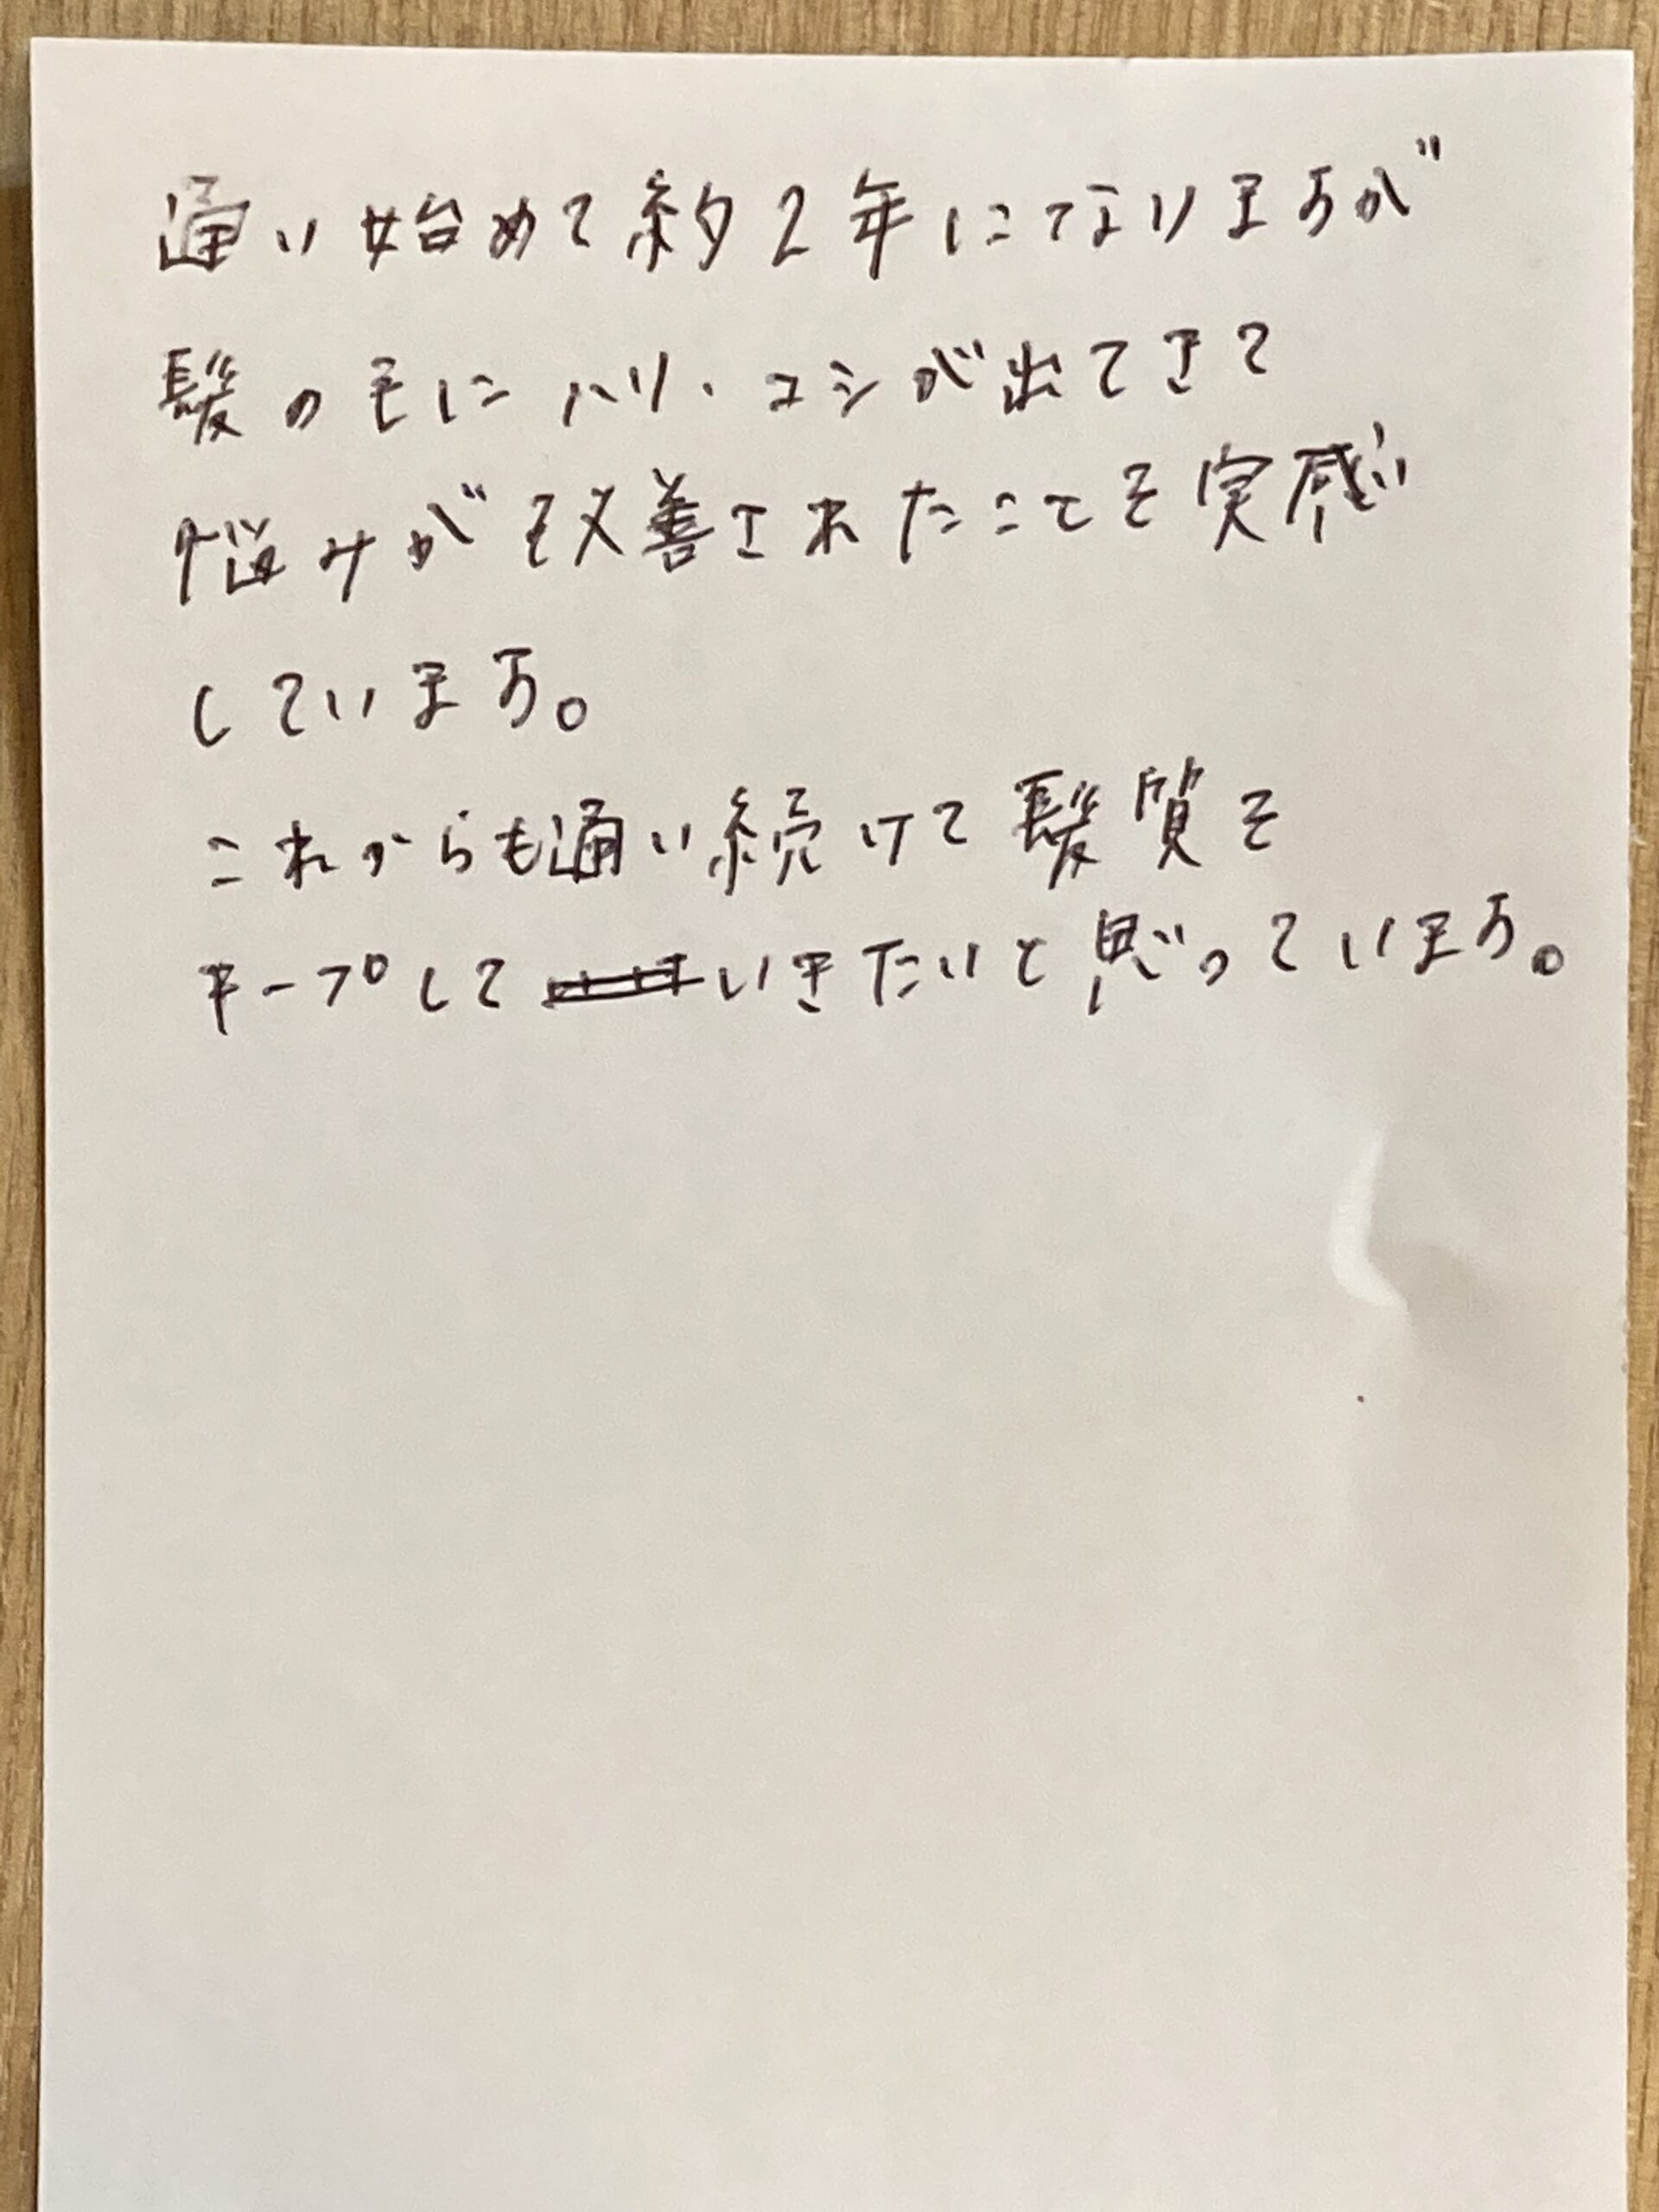 通い始めて約2年になりますが
髪の毛にハリ、コシが出てきて
悩みが改善されたことを実感
しています。
これからも通い続けて髪質を
キープしていきたいと思っています。